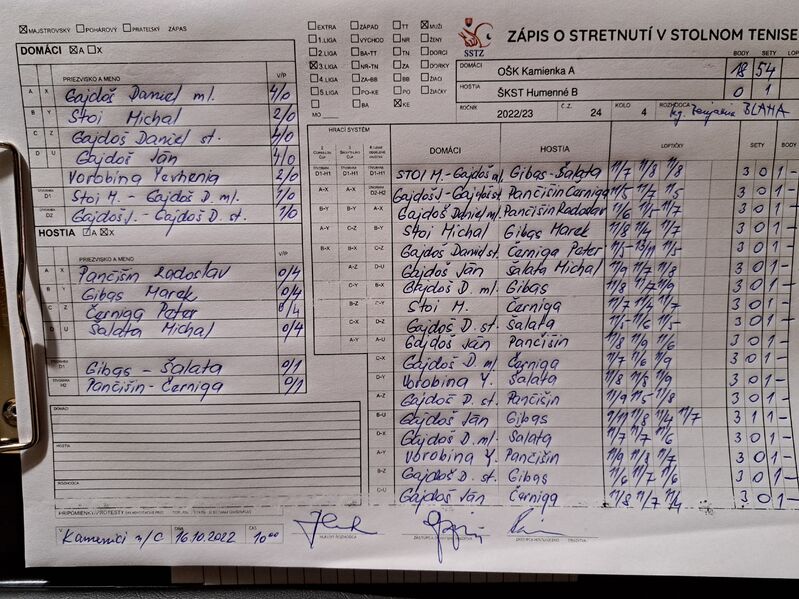 MAJSTROVSKÝ POHÁROVÝ PRIATEĽSKÝ ZÁPAS
DOMÁCI A X
PRIEZVISKO A MENO V/P
A X Gajdoš Daniel ml. 4/0
B Y Stoi Michal 2/0
C Z Gajdoš Daniel st. 4/0
D U Gajdoš Ján 4/0
Vorobina Yevhenia 2/0
D1 Stoi M. - Gajdoš D. ml. 1/0
D2 Gajdoš J. - Gajdoš D. st. 1/0
HOSTIA A X
PRIEZVISKO A MENO V/P
A X Pančišin Radoslav 0/4
B Y Gibas Marek 0/4
C Z Černiga Peter 0/4
D U Šalata Michal 0/4
D1 Gibas - Šalata 0/1
H2 Pančišin - Černiga 0/1
DOMÁCI
HOSTIA
ROZHODCA
PRIPOMIENKY/PROTESTY
V Kamenici n/C DŇA 16.10.2022 ČAS 10⁰⁰
EXTRA ZÁPAD TT MUŽI
1.LIGA VÝCHOD NR ŽENY
2.LIGA BA-TT TN DORCI
3.LIGA NR-TN ZA DORKY
4.LIGA ZA-BB BB ŽIACI
5.LIGA PO-KE PO ŽIAČKY
BA KE
MO
SSTZ
ZÁPIS O STRETNUTÍ V STOLNOM TENISE
BODY SETY
DOMÁCI OŠK Kamienka A 18 54
HOSTIA ŠKST Humenné B 0 1
ROČNÍK 2022/23 Č.Z. 24 KOLO 4 ROZHODCA BLAHA
HRACÍ SYSTÉM DOMÁCI HOSTIA LOPTIČKY SETY BODY
D1-H1 D1-H1 STOI M. - Gajdoš ml. Gibas - Šalata 11/7 11/8 11/8 3 0 1 -
A-X D2-H2 Gajdoš J - Gajdoš st. Pančišin Černiga 11/5 11/7 11/5 3 0 1 -
B-Y A-X Gajdoš Daniel ml. Pančišin Radoslav 11/6 11/5 11/7 3 0 1 -
Stoi Michal Gibas Marek 11/8 11/4 11/7 3 0 1 -
Gajdoš Daniel st. Černiga Peter 11/5 13/11 11/5 3 0 1 -
Gajdoš Ján Šalata Michal 11/9 11/7 11/8 3 0 1 -
Gajdoš D. ml. Gibas 11/8 11/7 11/9 3 0 1 -
Stoi M. Černiga 11/7 11/4 11/7 3 0 1 -
Gajdoš D. st. Šalata 11/5 11/6 11/5 3 0 1 -
Gajdoš Ján Pančišin 11/8 11/9 11/6 3 0 1 -
C-X Gajdoš D. ml. Černiga 11/7 11/6 11/9 3 0 1 -
D-Y Vorobina Y. Šalata 11/8 11/8 11/9 3 0 1 -
A-Z Gajdoš D. st. Pančišin 11/9 11/5 11/8 3 0 1 -
B-U Gajdoš Ján Gibas 9/11 11/8 11/4 11/7 3 1 1 -
D-X Gajdoš D. ml. Šalata 11/7 11/7 11/6 3 0 1 -
A-Y Vorobina Y. Pančišin 11/9 11/8 11/8 3 0 1 -
B-Z Gajdoš D. st. Gibas 11/6 11/7 11/6 3 0 1 -
C-U Gajdoš Ján Černiga 11/8 11/7 11/4 3 0 1 -